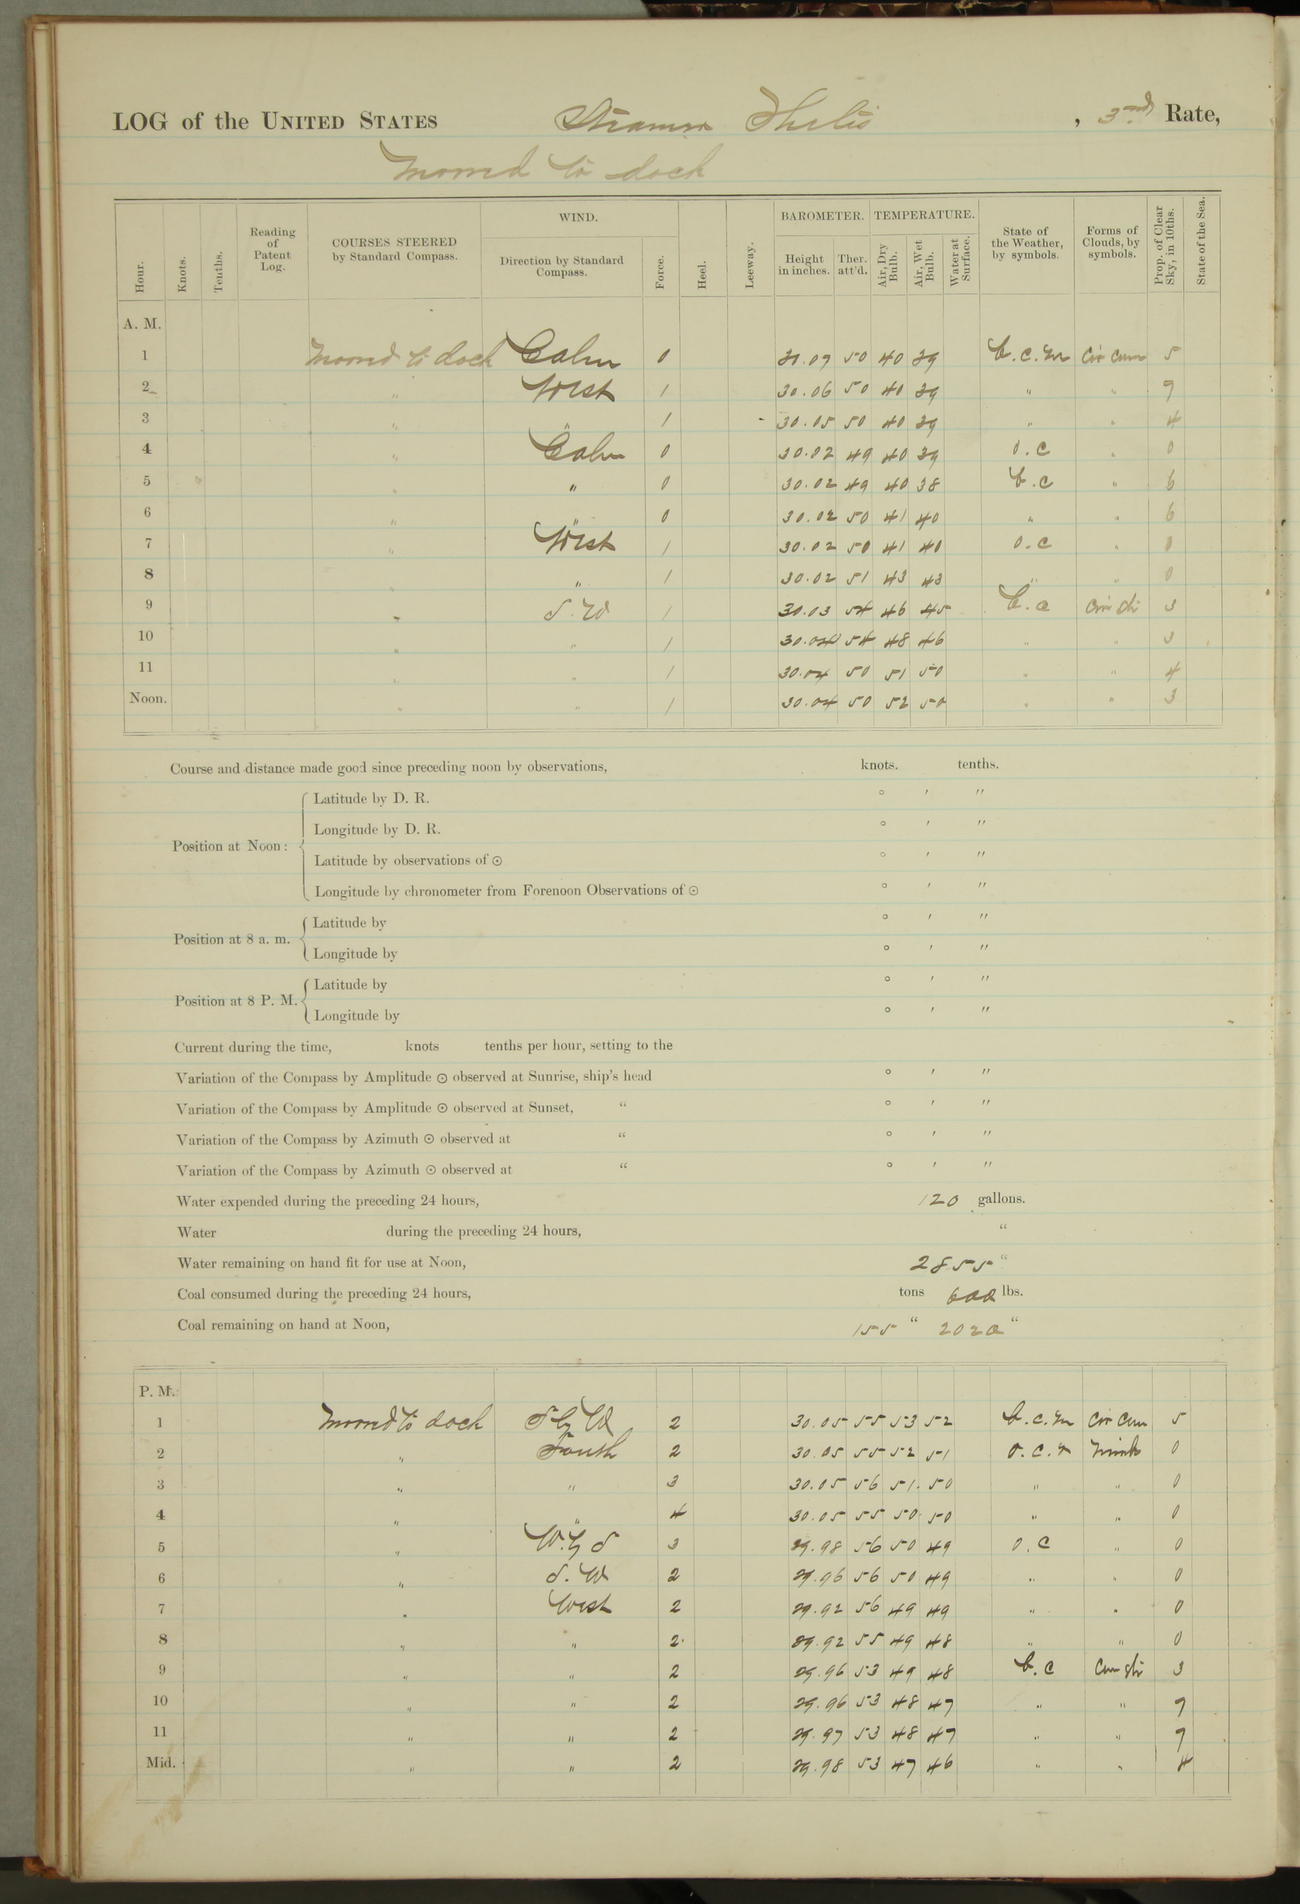 LOG of the UNITED STATES Steamer Thetis, 3rd Rate,
Moored to dock
Hour. Knots. Tenths. Reading of Patent Log. COURSES STEERED by Standard Compass. WIND. Direction by Standard Compass. Force. Heel. Leeway. BAROMETER. Height in inches. Ther. att'd. TEMPERATURE. Air, Dry Bulb. Air, Wet Bulb. Water at Surface. State of the Weather, by symbols. Forms of Clouds, by symbols. Prop. of Clear Sky, in 10ths. State of the Sea.
A. M.
1 Moored to dock Calm 0 30.07 50 40 39 b.c.m Cir Cum 5
2 " West 1 30.06 50 40 39 " " 7
3 " " 1 30.05 50 40 39 " " 4
4 " Calm 0 30.02 49 40 39 o.c " 0
5 " " 0 30.02 49 40 38 b.c " 6
6 " " 0 30.02 50 41 40 " " 6
7 " West 1 30.02 50 41 40 o.c " 0
8 " " 1 30.02 51 43 43 " " 0
9 " S.W 1 30.03 54 46 45 b.c Cir Str 3
10 " " 1 30.04 54 48 46 " " 3
11 " " 1 30.04 50 51 50 " " 4
Noon. " " 1 30.04 50 52 50 " " 3
Course and distance made good since preceding noon by observations, knots. tenths.
Position at Noon: Latitude by D. R. ° ′ ″
Longitude by D. R. ° ′ ″
Latitude by observations of ⊙ ° ′ ″
Longitude by chronometer from Forenoon Observations of ⊙ ° ′ ″
Position at 8 a. m. Latitude by ° ′ ″
Longitude by ° ′ ″
Position at 8 P. M. Latitude by ° ′ ″
Longitude by ° ′ ″
Current during the time, knots tenths per hour, setting to the
Variation of the Compass by Amplitude ⊙ observed at Sunrise, ship's head ° ′ ″
Variation of the Compass by Amplitude ⊙ observed at Sunset, " ° ′ ″
Variation of the Compass by Azimuth ⊙ observed at " ° ′ ″
Variation of the Compass by Azimuth ⊙ observed at " ° ′ ″
Water expended during the preceding 24 hours, 120 gallons.
Water during the preceding 24 hours, "
Water remaining on hand fit for use at Noon, 2855 "
Coal consumed during the preceding 24 hours, tons 600 lbs.
Coal remaining on hand at Noon, 155 " 2020 "
P. M.
1 Moored to dock S by W 2 30.05 55 53 52 b.c.m Cir Cum 5
2 " South 2 30.05 55 52 51 o.c.r Nimb 0
3 " " 3 30.05 56 51 50 " " 0
4 " " 4 30.05 55 50 50 " " 0
5 " W by S 3 29.98 56 50 49 o.c " 0
6 " S.W 2 29.96 56 50 49 " " 0
7 " West 2 29.92 56 49 49 " " 0
8 " " 2 29.92 55 49 48 " " 0
9 " " 2 29.96 53 49 48 b.c Cum Str 3
10 " " 2 29.96 53 48 47 " " 7
11 " " 2 29.97 53 48 47 " " 7
Mid. " " 2 29.98 53 47 46 " " 4